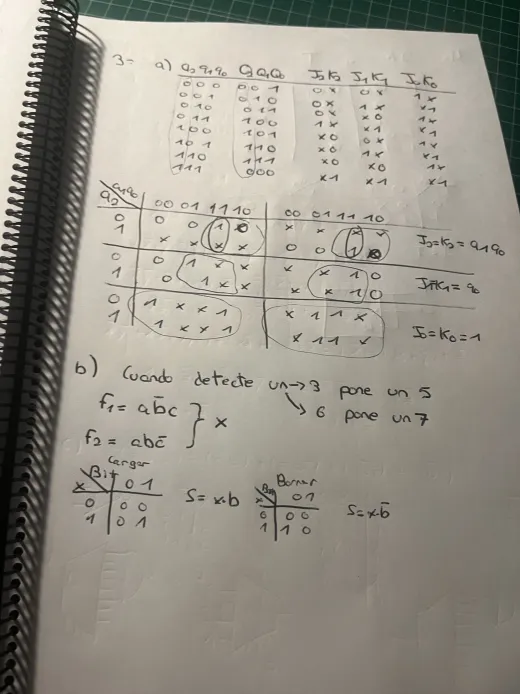 3= a) q2 q1 q0 Q2 Q1 Q0 J2 K2 J1 K1 J0 K0
0 0 0 0 0 1 0 x 0 x 1 x
0 0 1 0 1 0 0 x 1 x x 1
0 1 0 0 1 1 0 x x 0 1 x
0 1 1 1 0 0 1 x x 1 x 1
1 0 0 1 0 1 x 0 0 x 1 x
1 0 1 1 1 0 x 0 1 x x 1
1 1 0 1 1 1 x 0 x 0 1 x
1 1 1 0 0 0 x 1 x 1 x 1
q1q0
q2 00 01 11 10 00 01 11 10
0 0 0 1 0 x x x x
1 x x x x 0 0 1 0
J2=K2= q1q0
0 0 1 x x x x 1 0
1 0 1 x x x x 1 0
J1=K1= q0
0 1 x x 1 x 1 1 x
1 1 x x 1 x 1 1 x
J0=K0=1
b) Cuando detecte un → 3 pone un 5
↘ 6 pone un 7
f1= ab̄c } x
f2= abc̄
Cargar
Bit
x 0 1
0 0 0
1 0 1
S= x·b
Borrar
Bit
x 0 1
0 0 0
1 1 0
S= x·b̄